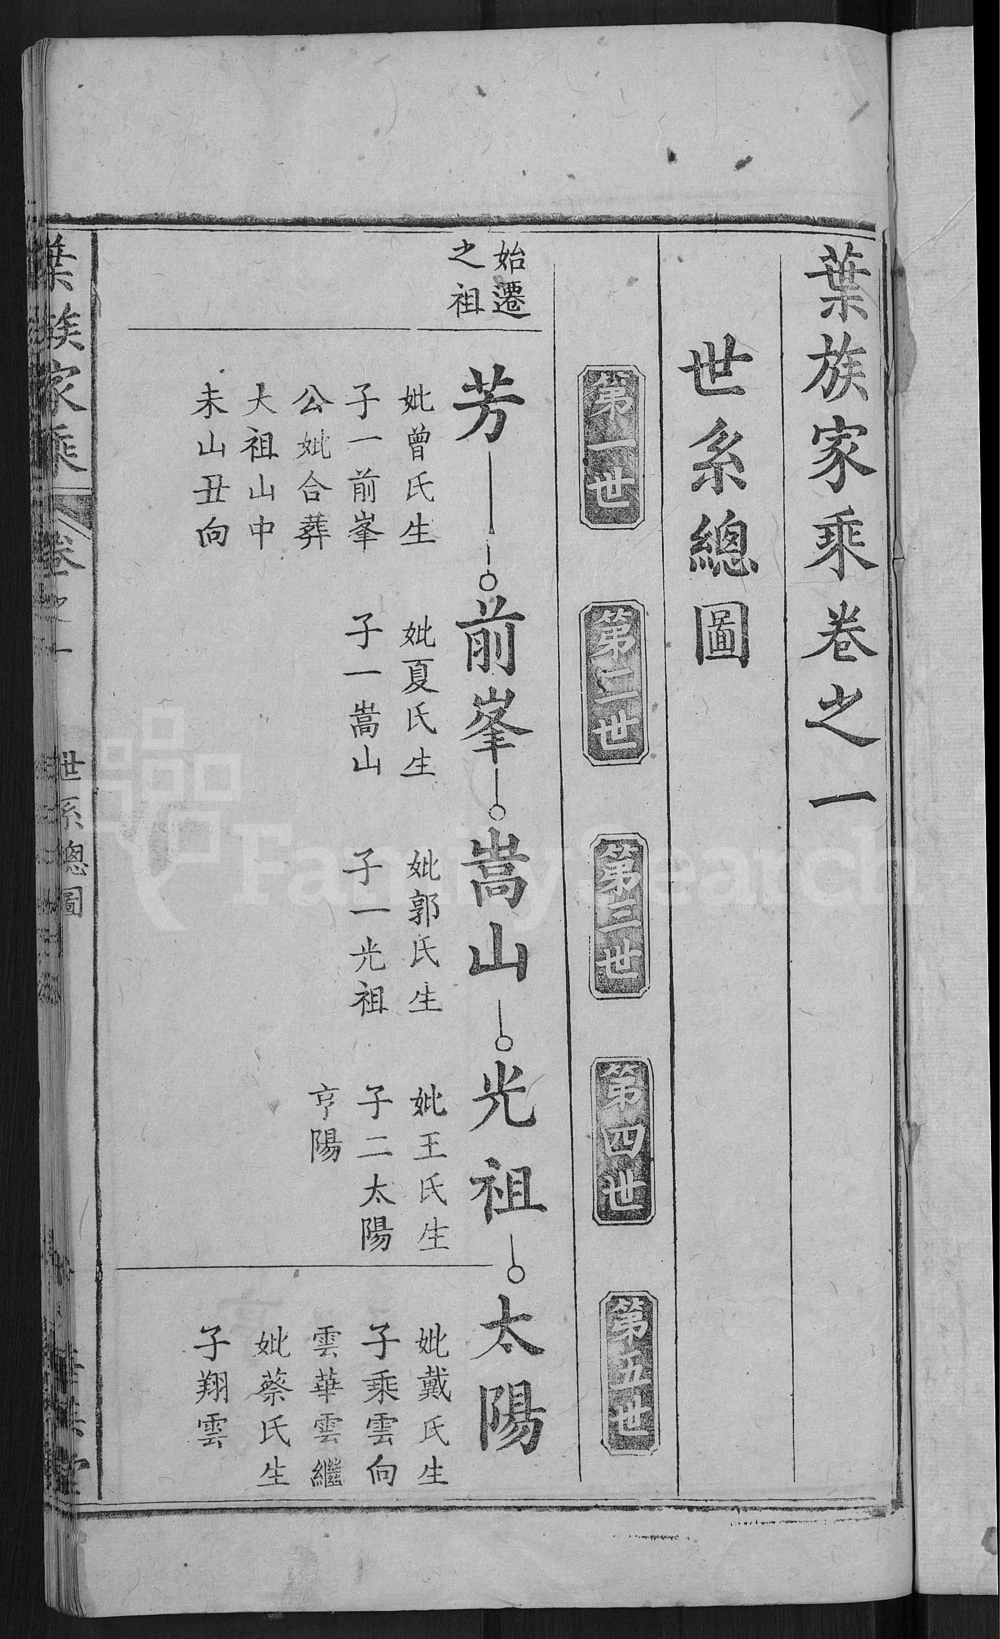 葉族家乘卷之一
世系總圖
第一世
第二世
第三世
第四世
第五世
始遷
之祖
芳
前峯
嵩山
光祖
太陽
妣曾氏生
子一前峯
公妣合葬
大祖山中
未山丑向
妣夏氏生
子一嵩山
妣郭氏生
子一光祖
妣王氏生
子二太陽
亨陽
妣戴氏生
子乘雲向
雲華雲繼
妣蔡氏生
子翔雲
葉族家乘
卷之一
世系總圖
FamilySearch